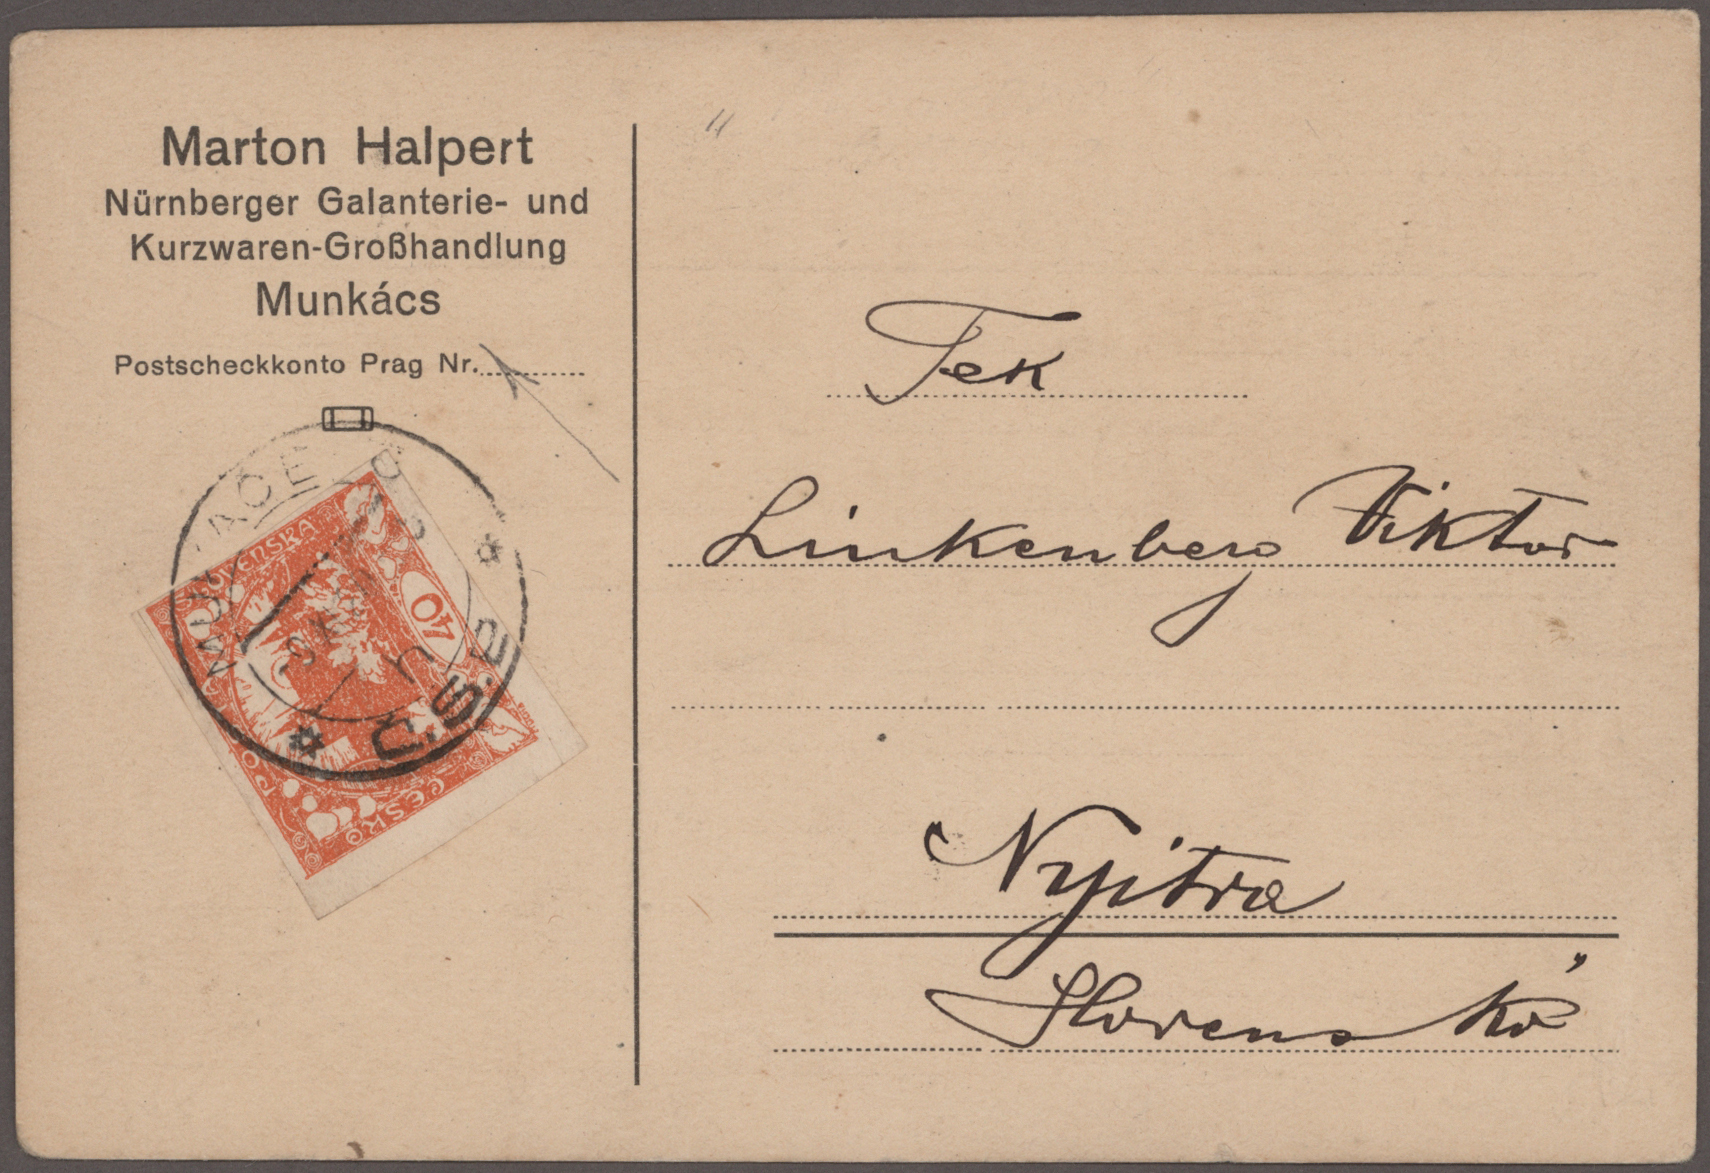 Marton Halpert
Nürnberger Galanterie- und
Kurzwaren-Großhandlung
Munkács
Postscheckkonto Prag Nr.
Č.S.P.
40
ČESKO
Tek
Linkenberg Viktor
Nyitra
Slovensko